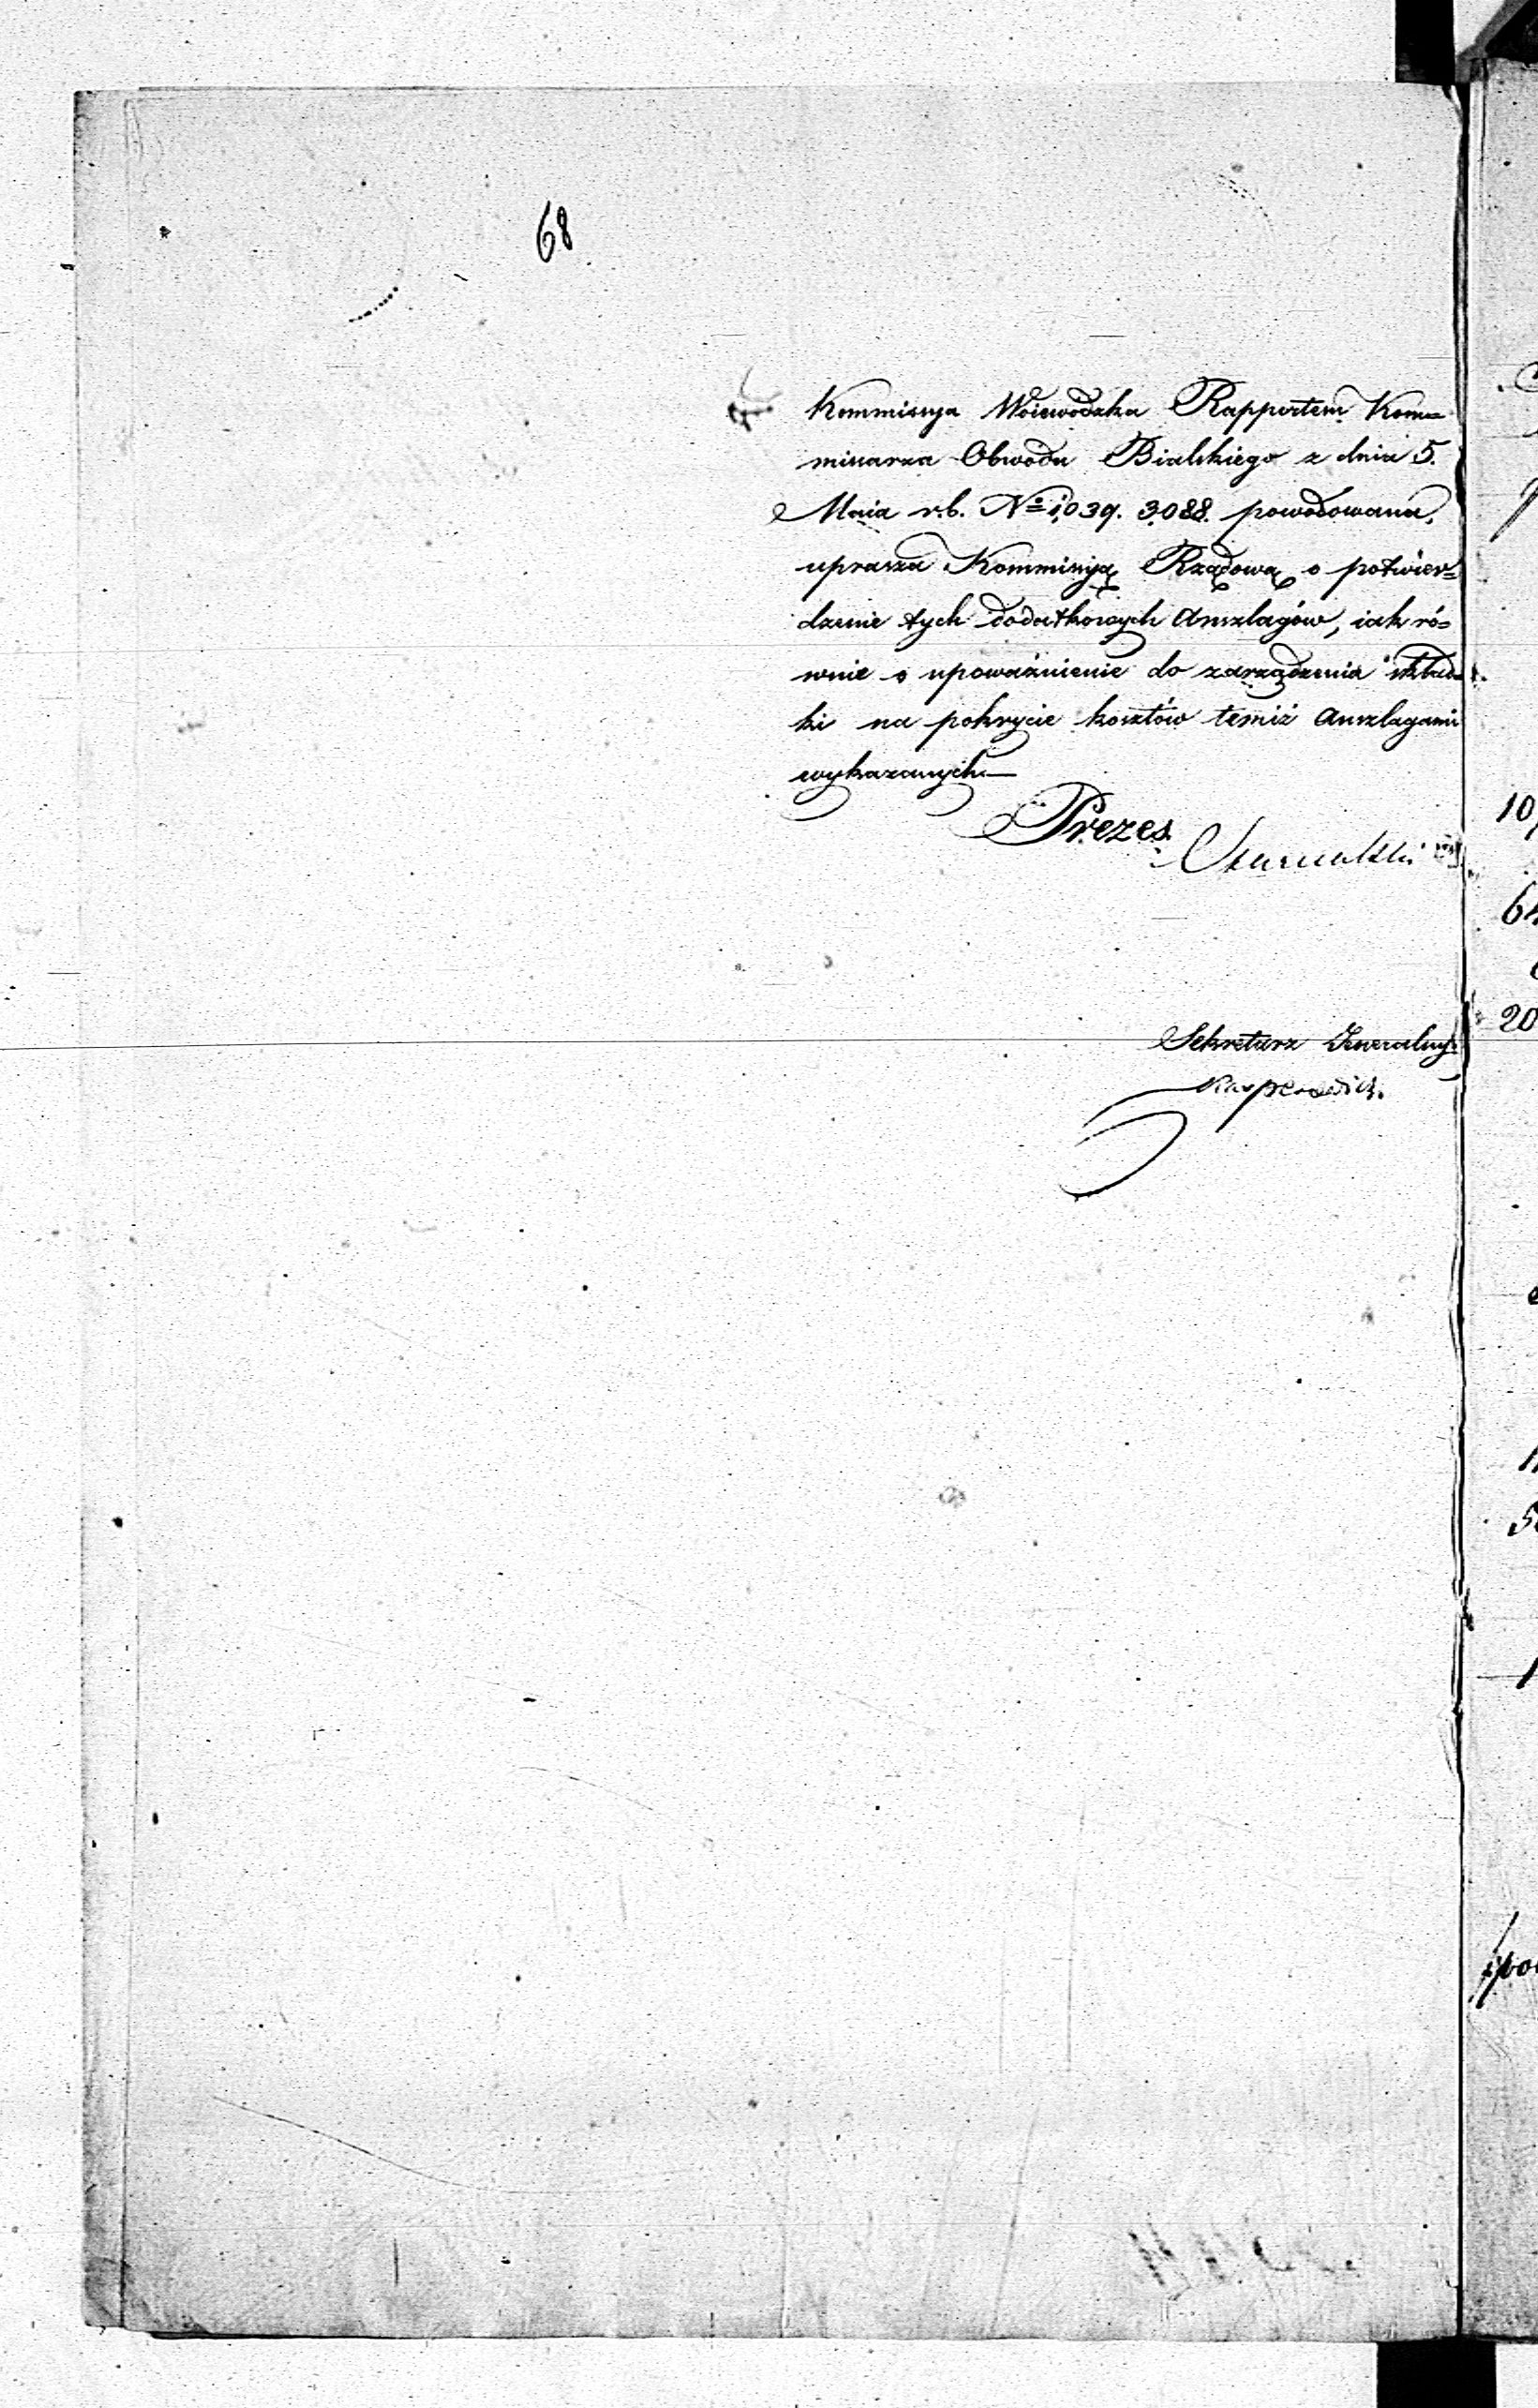 68
Kommissya Woiewodzka Rapportem Kom=
missarza Obwodu Bialskiego z dnia 5.
Maia r.b. No 1,039. 3,088. powodowana,
uprasza Kommissyą Rządową o potwier=
dzenie tych dodatkowych Anszlagów, iak ró=
wnie o upoważnienie do zarządzenia skład=
ki na pokrycie kosztów temiż Anszlagami
wykazanych.—
Prezes
Sekretarz Jeneralny